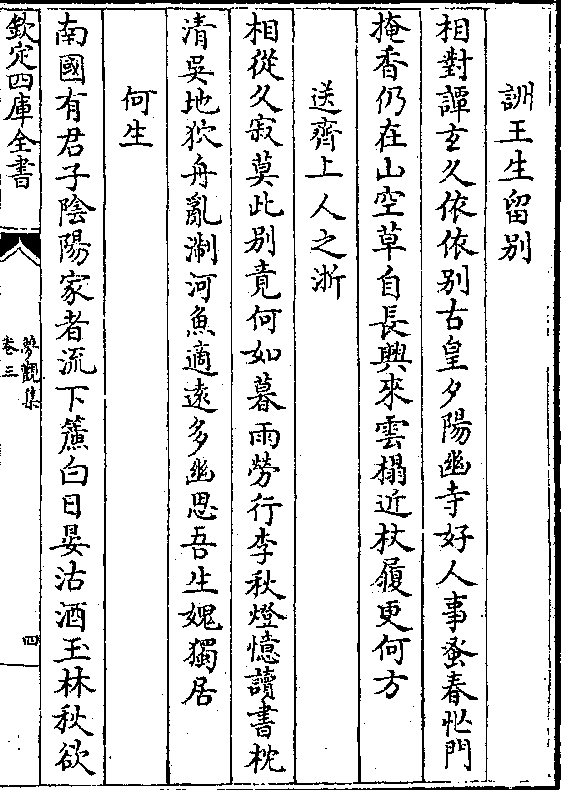 詶王生留别
相對譚玄久依依别古皇夕陽幽寺好人事蚤春忙門
掩香仍在山空草自長興來雲榻近杖履更何方
送齊上人之浙
相從久寂莫此别竟何如暮雨勞行李秋燈憶讀書枕
清吳地舟亂淛河魚適遠多幽思吾生媿獨居
何生
南國有君子陰陽家者流下簾白日晏沽酒玉林秋欲
欽定四庫全書
夢觀集
卷三
四